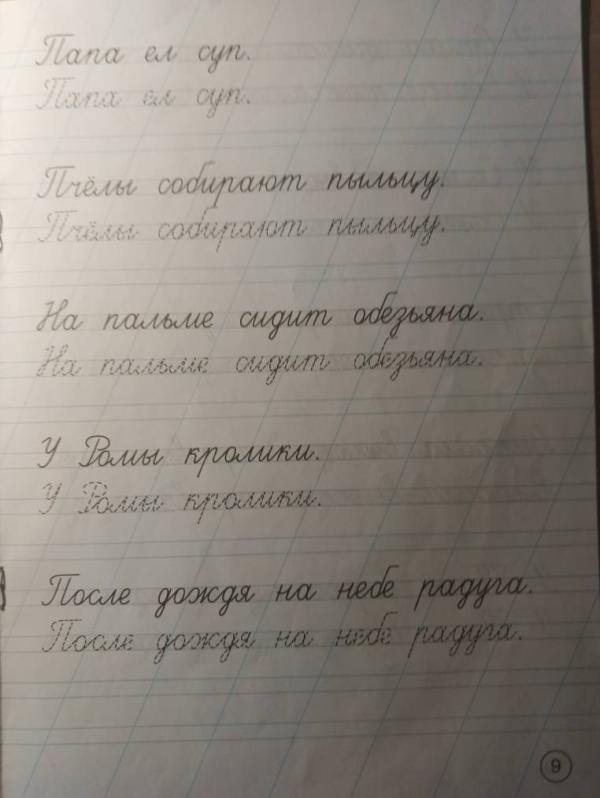 Папа ел суп.
Папа ел суп.
Пчёлы собирают пыльцу.
Пчёлы собирают пыльцу.
На пальме сидит обезьяна.
На пальме сидит обезьяна.
У Ромы кролики.
У Ромы кролики.
После дождя на небе радуга.
После дождя на небе радуга.
9